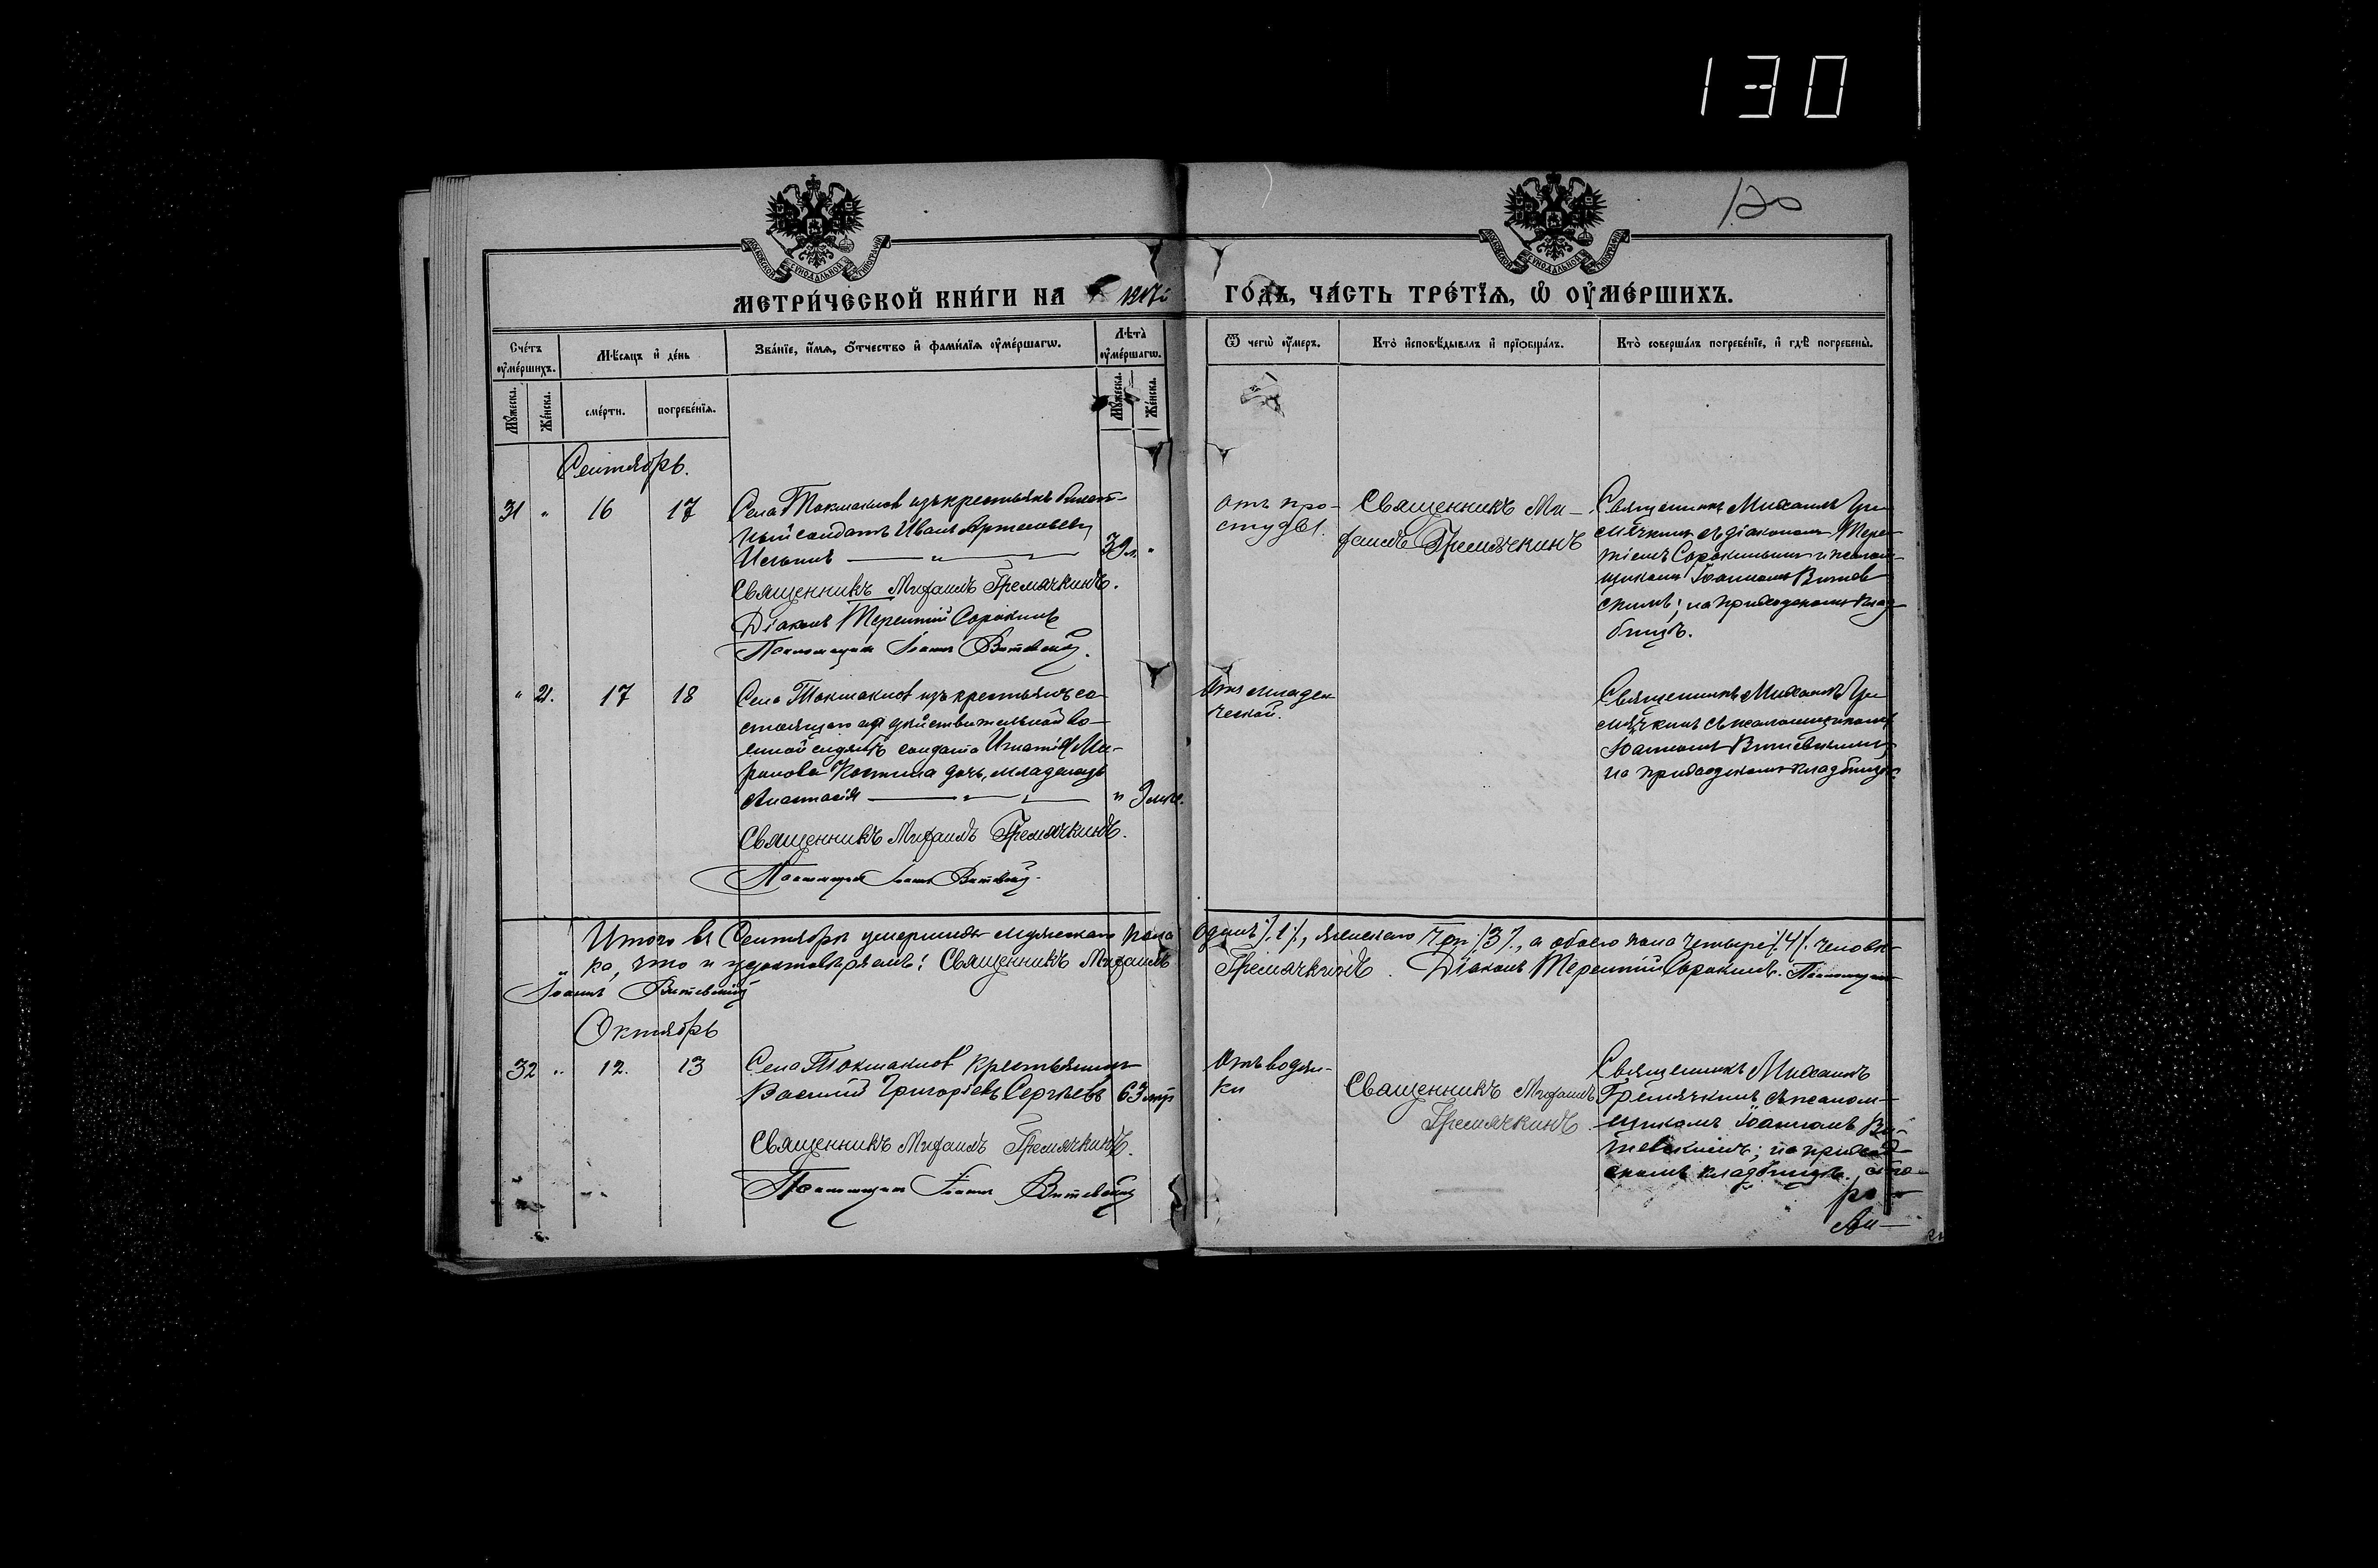 130
120
МОСКОВСКОЙ СѴНОДАЛЬНОЙ ТИПОГРАФІИ
МОСКОВСКОЙ СѴНОДАЛЬНОЙ ТИПОГРАФІИ
МЕТРИ́ЧЕСКОЙ КНИ́ГИ НА 1917 й ГО́ДЪ, ЧА́СТЬ ТРЕ́ТЇѦ, Ѡ҆ ОУ҆МЕ́РШИХЪ.
Сче́тъ оу҆ме́ршихъ.
Мѣ́сяцъ и҆ де́нь
Зва́нїе, и҆́мѧ, ѻ҆́тчество и҆ фами́лїѧ оу҆ме́ршагѡ.
Лѣ́та оу҆ме́ршагѡ.
Ѿ чегѡ̀ оу҆́меръ.
Кто̀ и҆сповѣ́дывалъ и҆ прїѻбща́лъ.
Кто̀ соверша́лъ погребе́нїе, и҆ гдѣ̀ погребены̀.
Мꙋ́жеска.
Же́нска.
сме́рти.
погребе́нїѧ.
Мꙋ́жеска.
Же́нска.
Сентябрь.
31 " 16 17
Села Токмаклов изъ крестьянъ билет-
ный солдатъ Иванъ Артемьевъ
39 л. "
Священникъ Михаилъ Гремячкинъ.
Діаконъ Терентій Сорокинъ
Псаломщикъ Іоаннъ Витевскій.
отъ про-
студы.
Священникъ Ми-
хаилъ Гремячкинъ
Священникъ Михаилъ Гре-
мячкинъ съ діакономъ Терен-
тіемъ Сорокинымъ и псалом-
щикомъ Іоанномъ Витев-
скимъ; на приходскомъ клад-
бищѣ.
" 21. 17 18
Села Токмаклов изъ крестьянъ со-
стоящаго на дѣйствительной во-
енной службѣ солдата Игнатія Ми-
ронова Костина дочь, младенецъ
Анастасія " 9 мѣс.
Священникъ Михаилъ Гремячкинъ.
Псаломщикъ Іоаннъ Витевскій.
Отъ младен
ческой.
Священникъ Михаилъ Гре-
мячкинъ съ псаломщикомъ
Іоанномъ Витевскимъ;
на приходскомъ кладбищѣ.
Итого въ Сентябрѣ умершихъ мужескаго пола одинъ /.1./, женскаго три /.3./, а обоего пола четыре /.4./ человѣ-
ка, что и удостовѣряемъ: Священникъ Михаилъ Гремячкинъ. Діаконъ Терентій Сорокинъ. Псаломщикъ
Іоаннъ Витевскій
Октябрь
32 " 12. 13
Села Токмаклов крестьянинъ
Василій Григорьевъ Сергѣевъ 63
Священникъ Михаилъ Гремячкинъ.
Псаломщикъ Іоаннъ Витевскій
Отъ водян-
ки
Священникъ Михаилъ
Гремячкинъ
Священникъ Михаилъ
Гремячкинъ съ псалом-
щикомъ Іоанномъ Ви-
тевскимъ; на приход-
скомъ кладбищѣ.